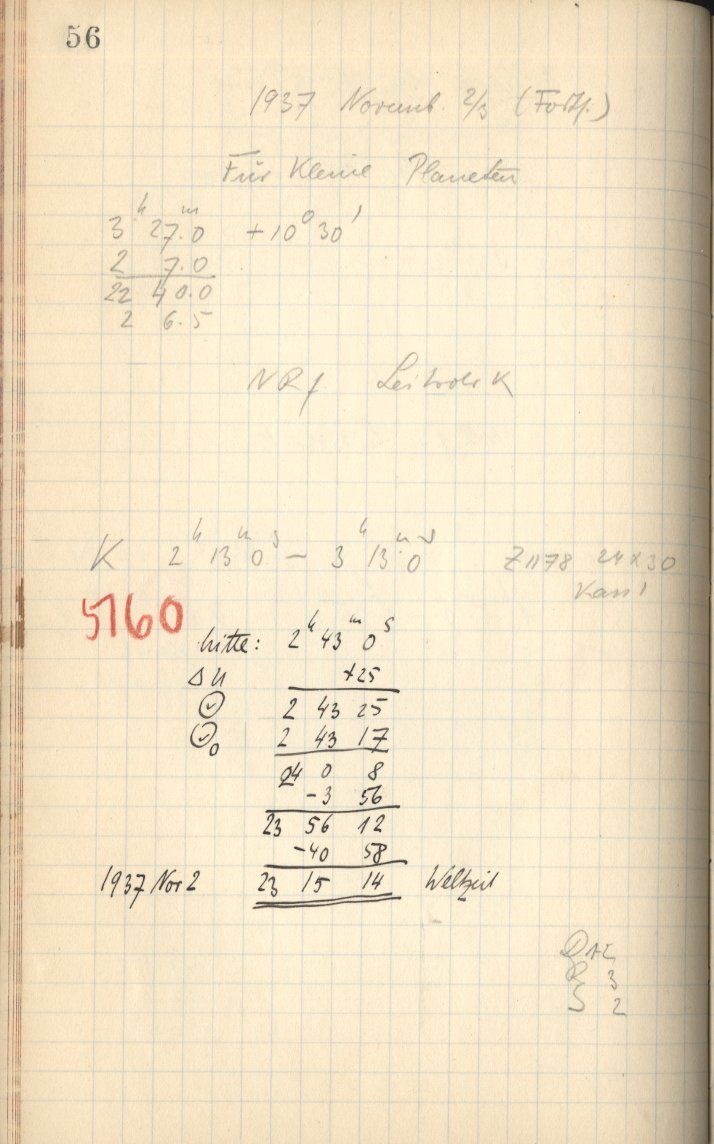 56
1937 Novemb. 2/3 (Forts.)
Für Kleine Planeten
3h 27m.0 +10° 30'
2 7.0
22 40.0
2 6.5
NRf
K 2h 13m 0s – 3h 13m 0s Z1178 24x30
5160
Mitte: 2h 43m 0s
ΔU +25
2 43 25
0 2 43 17
24 0 8
-3 56
23 56 12
-40 58
1937 Nov 2 23 15 14 Weltzeit
3
S 2